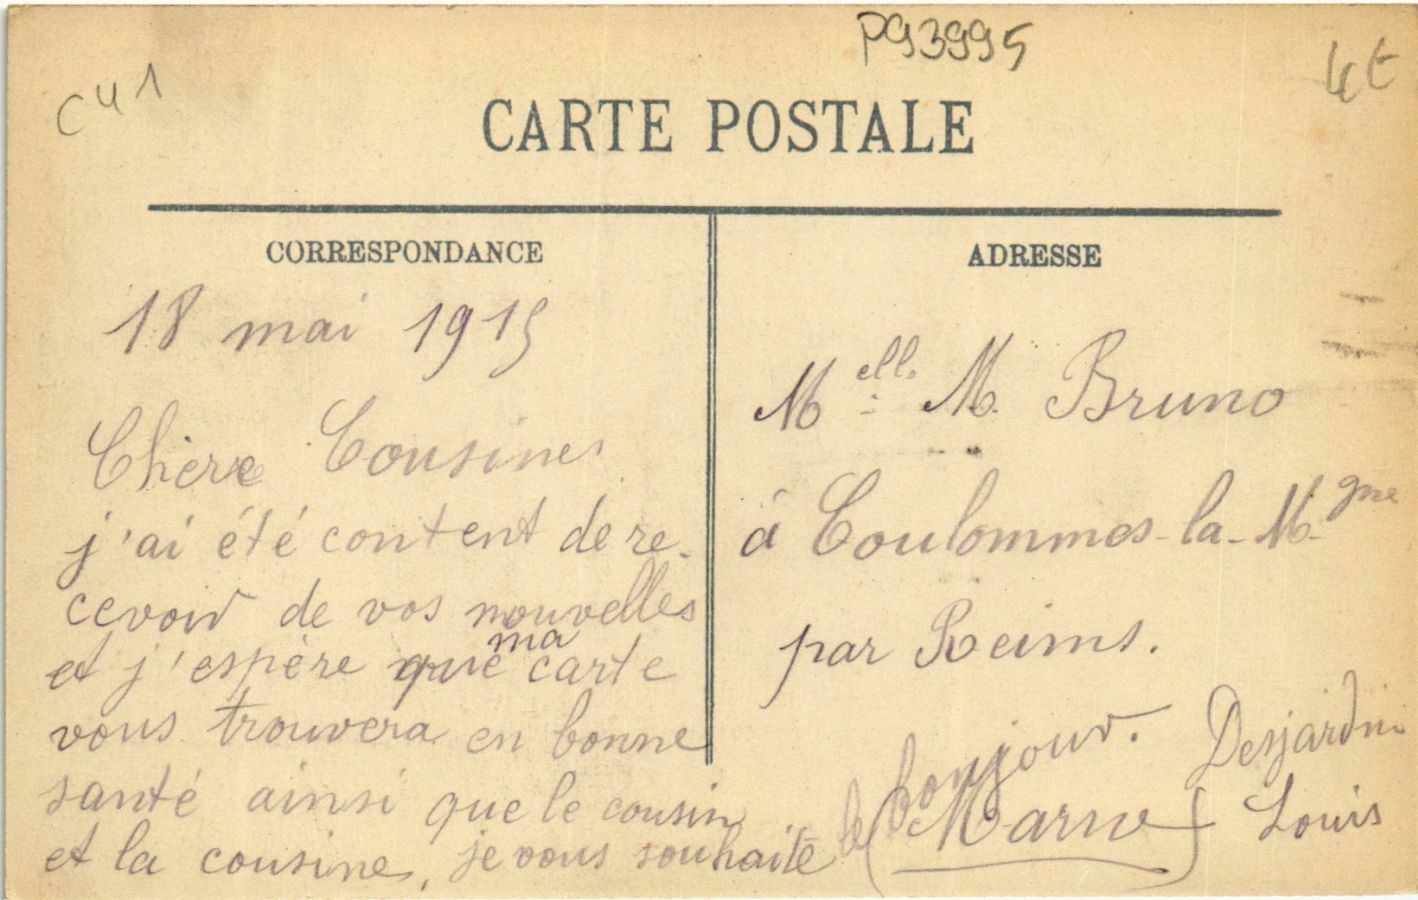 P93995
4€
C41
CARTE POSTALE
CORRESPONDANCE
18 mai 1915
Chère Cousine
j'ai été content de re-
cevoir de vos nouvelles
et j'espère que ma carte
vous trouvera en bonne
santé ainsi que le cousin
et la cousine, je vous souhaite
le bonjour.
ADRESSE
Melle M. Bruno
à Coulommes-la-Mgne
par Reims.
(Marne)
Desjardin
Louis